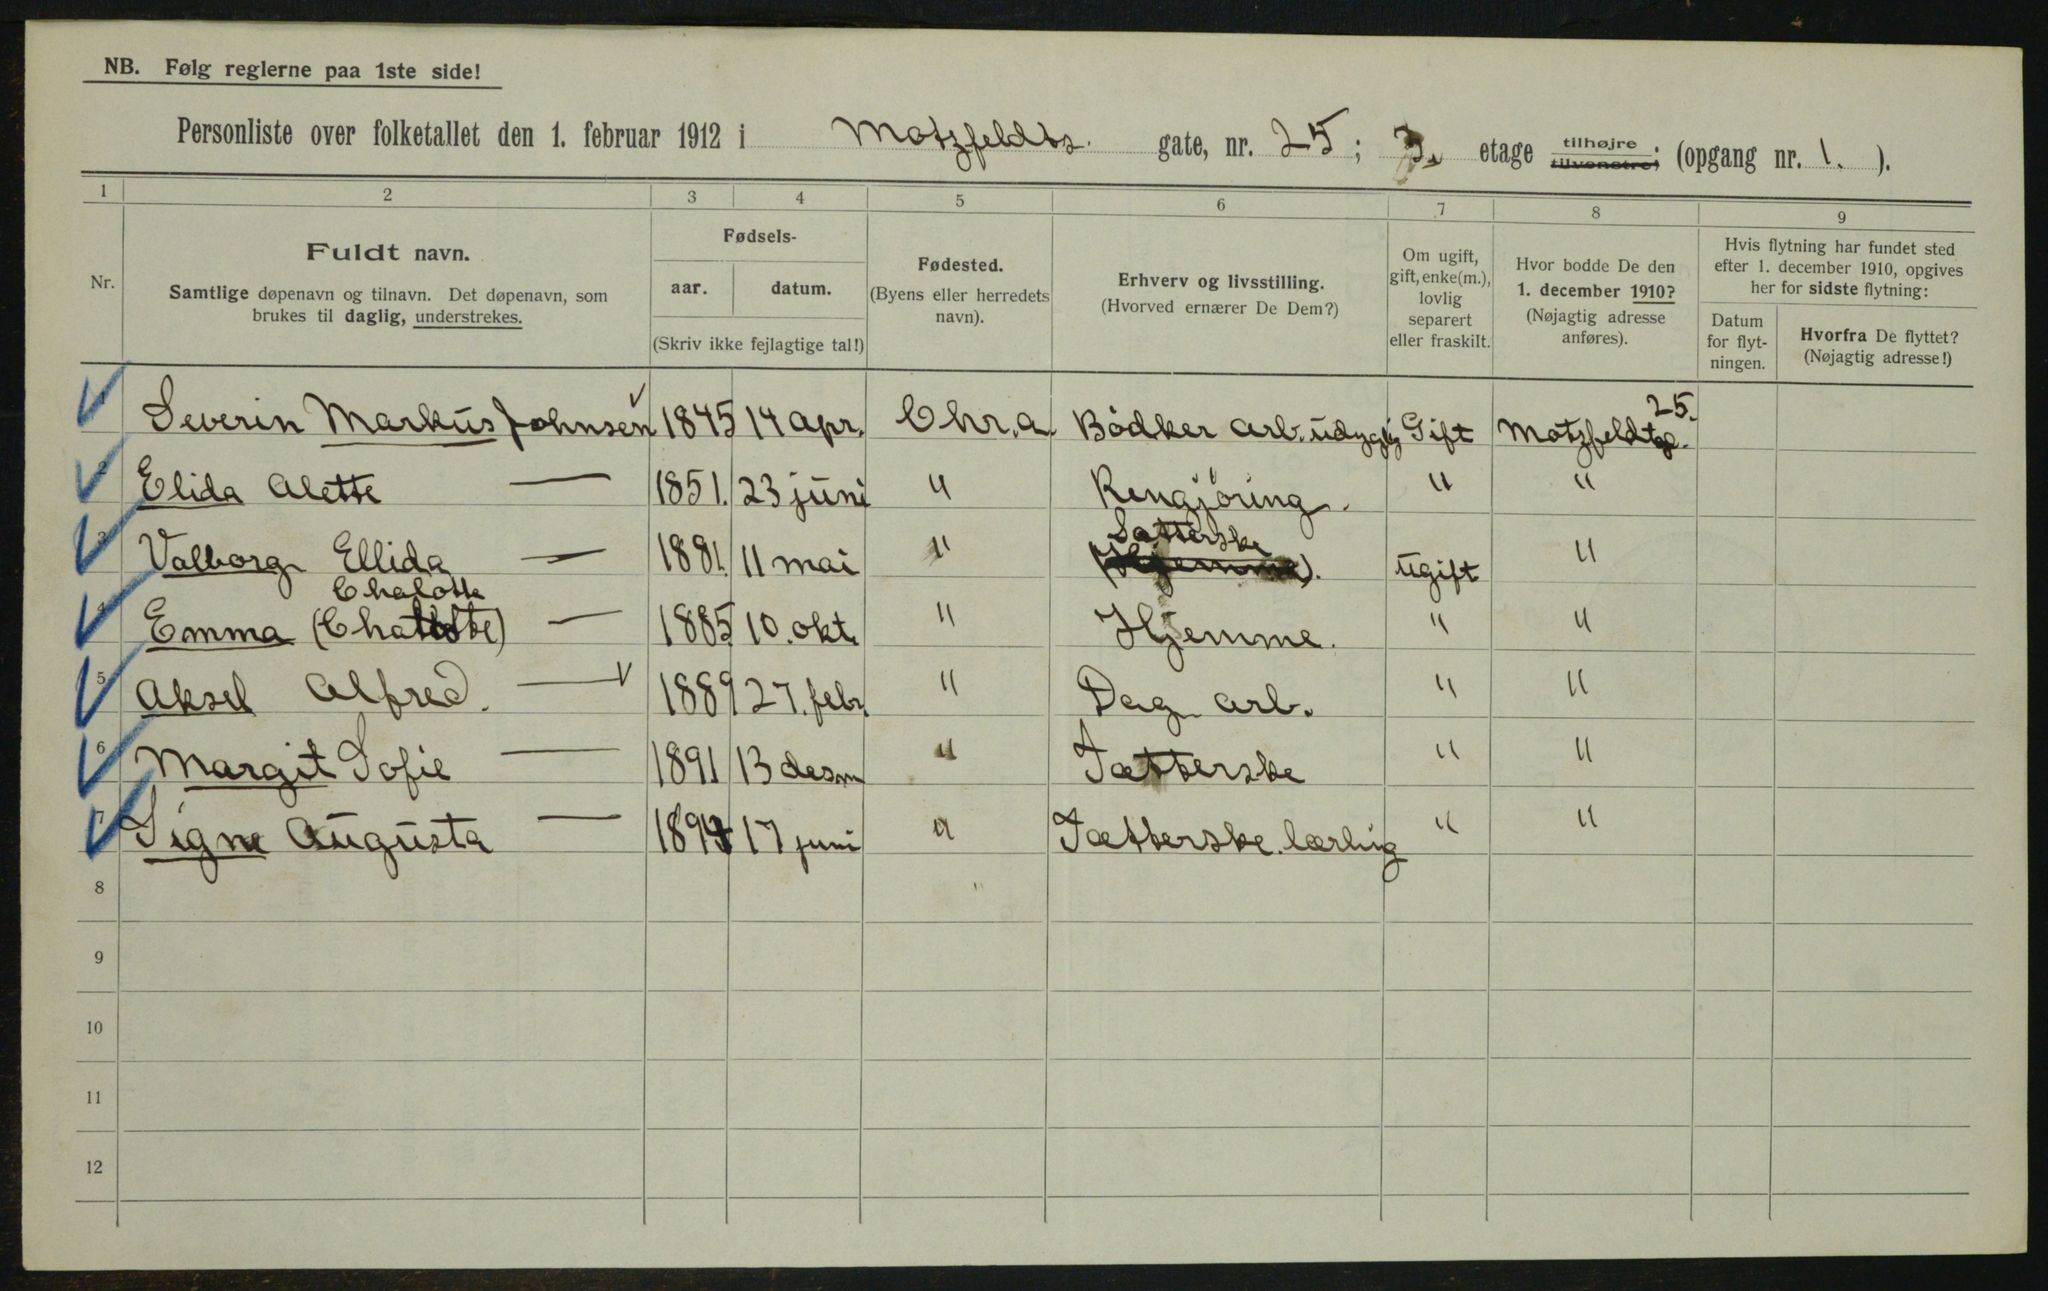 NB. Følg reglerne paa 1ste side!
Personliste over folketallet den 1. februar 1912 i Motzfeldts. gate, nr. 25; 3. etage tilhøjre tilvenstre; (opgang nr. 1. ).
1 2 3 4 5 6 7 8 9
Nr.
Fuldt navn.
Samtlige døpenavn og tilnavn. Det døpenavn, som
brukes til daglig, understrekes.
Fødsels-
aar. datum.
(Skriv ikke fejlagtige tal!)
Fødested.
(Byens eller herredets
navn).
Erhverv og livsstilling.
(Hvorved ernærer De Dem?)
Om ugift,
gift, enke(m.),
lovlig
separert
eller fraskilt.
Hvor bodde De den
1. december 1910?
(Nøjagtig adresse
anføres).
Hvis flytning har fundet sted
efter 1. december 1910, opgives
her for sidste flytning:
Datum
for flyt-
ningen.
Hvorfra De flyttet?
(Nøjagtig adresse!)
25.
Severin Markus Johnsen 1845 14 apr. Chr.a. Bödker arb. Gift Motzfeldtsg.
2 Elida Alette — 1851. 23 juni " Rengjöring. " "
Sætterske
3 Valborg Ellida — 1881. 11 mai " (Hjemme). ugift "
Chalotte
4 Emma (Chalotte) — 1885 10. okt. " Hjemme. " "
5 Aksel Alfred. — 1889 27. febr. " Dag arb. " "
6 Margit Sofie — 1891 13 desm " Sætterske " "
7 Signe Augusta — 1894 17 juni " Sætterske lærling " "
8
9
10
11
12